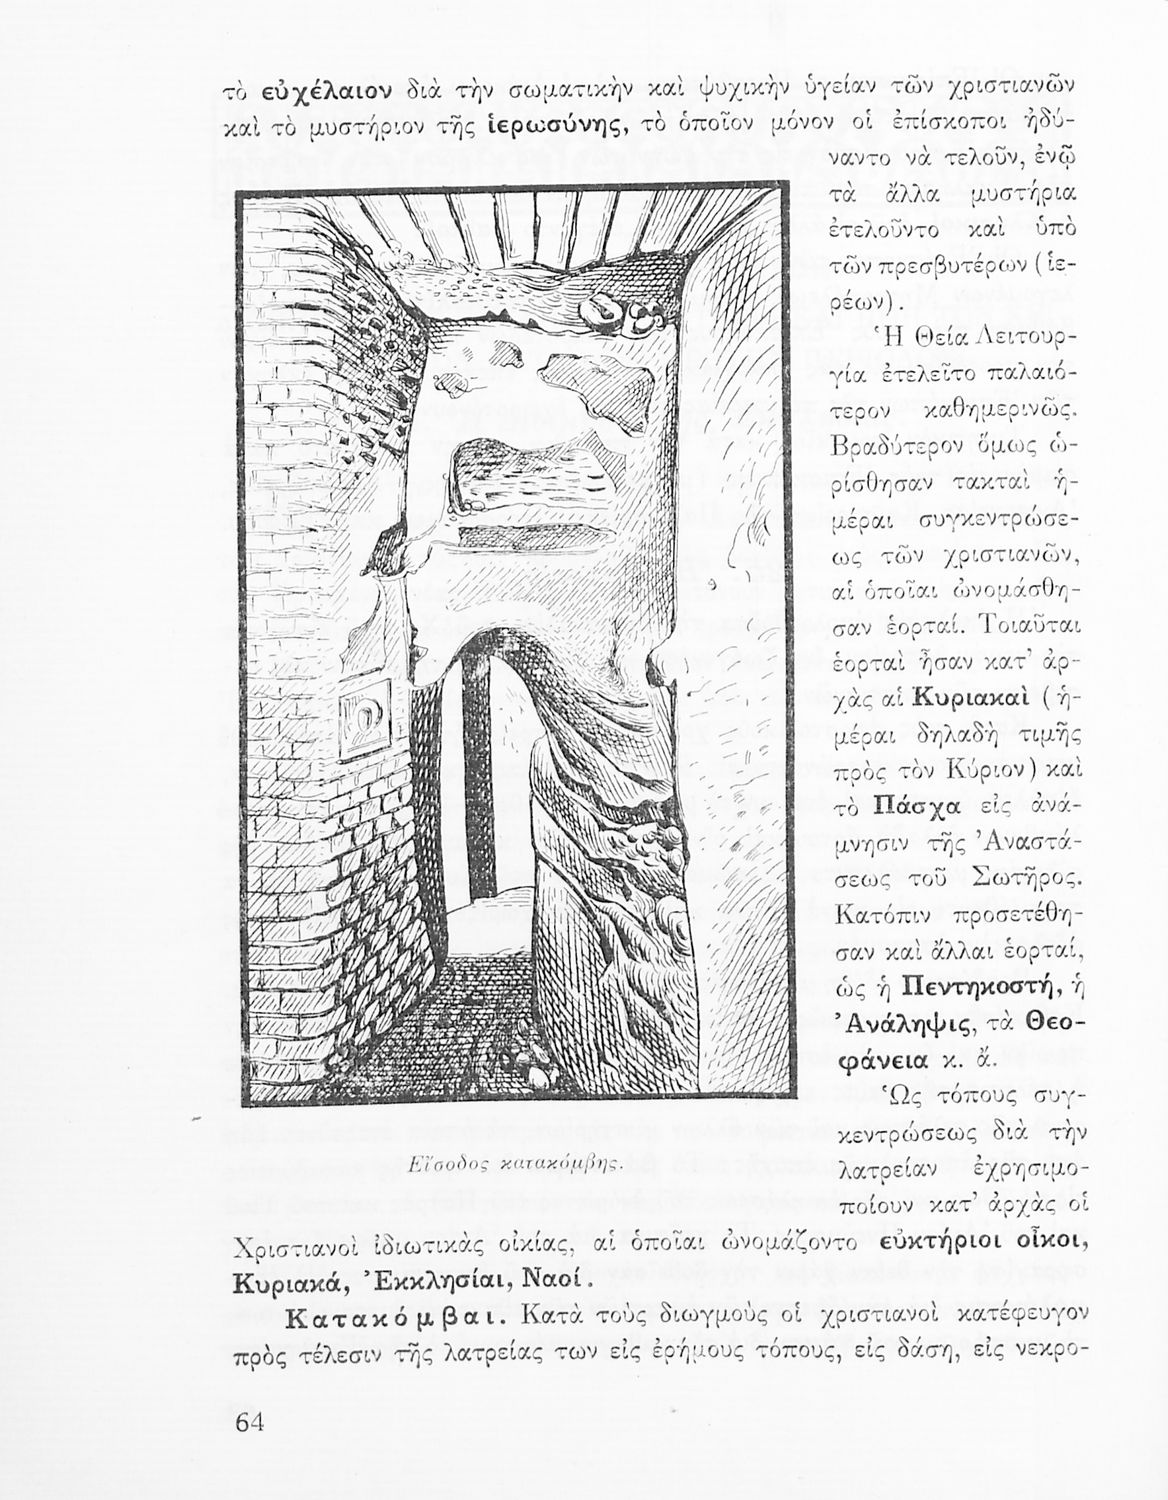 τὸ εὐχέλαιον διὰ τὴν σωματικὴν καὶ ψυχικὴν ὑγείαν τῶν χριστιανῶν
καὶ τὸ μυστήριον τῆς ἱερωσύνης, τὸ ὁποῖον μόνον οἱ ἐπίσκοποι ἠδύ-
ναντο νὰ τελοῦν, ἐνῷ
τὰ ἄλλα μυστήρια
ἐτελοῦντο καὶ ὑπὸ
τῶν πρεσβυτέρων (ἱε-
ρέων).
Ἡ Θεία Λειτουρ-
γία ἐτελεῖτο παλαιό-
τερον καθημερινῶς.
Βραδύτερον ὅμως ὡ-
ρίσθησαν τακταὶ ἡ-
μέραι συγκεντρώσε-
ως τῶν χριστιανῶν,
αἱ ὁποῖαι ὠνομάσθη-
σαν ἑορταί. Τοιαῦται
ἑορταὶ ἦσαν κατ' ἀρ-
χὰς αἱ Κυριακαὶ (ἡ-
μέραι δηλαδὴ τιμῆς
πρὸς τὸν Κύριον) καὶ
τὸ Πάσχα εἰς ἀνά-
μνησιν τῆς Ἀναστά-
σεως τοῦ Σωτῆρος.
Κατόπιν προσετέθη-
σαν καὶ ἄλλαι ἑορταί,
ὡς ἡ Πεντηκοστή, ἡ
Ἀνάληψις, τὰ Θεο-
φάνεια κ. ἄ.
Ὡς τόπους συγ-
κεντρώσεως διὰ τὴν
λατρείαν ἐχρησιμο-
ποίουν κατ' ἀρχὰς οἱ
Εἴσοδος κατακόμβης.
Χριστιανοὶ ἰδιωτικὰς οἰκίας, αἱ ὁποῖαι ὠνομάζοντο εὐκτήριοι οἶκοι,
Κυριακά, Ἐκκλησίαι, Ναοί.
Κατακόμβαι. Κατὰ τοὺς διωγμοὺς οἱ χριστιανοὶ κατέφευγον
πρὸς τέλεσιν τῆς λατρείας των εἰς ἐρήμους τόπους, εἰς δάση, εἰς νεκρο-
64